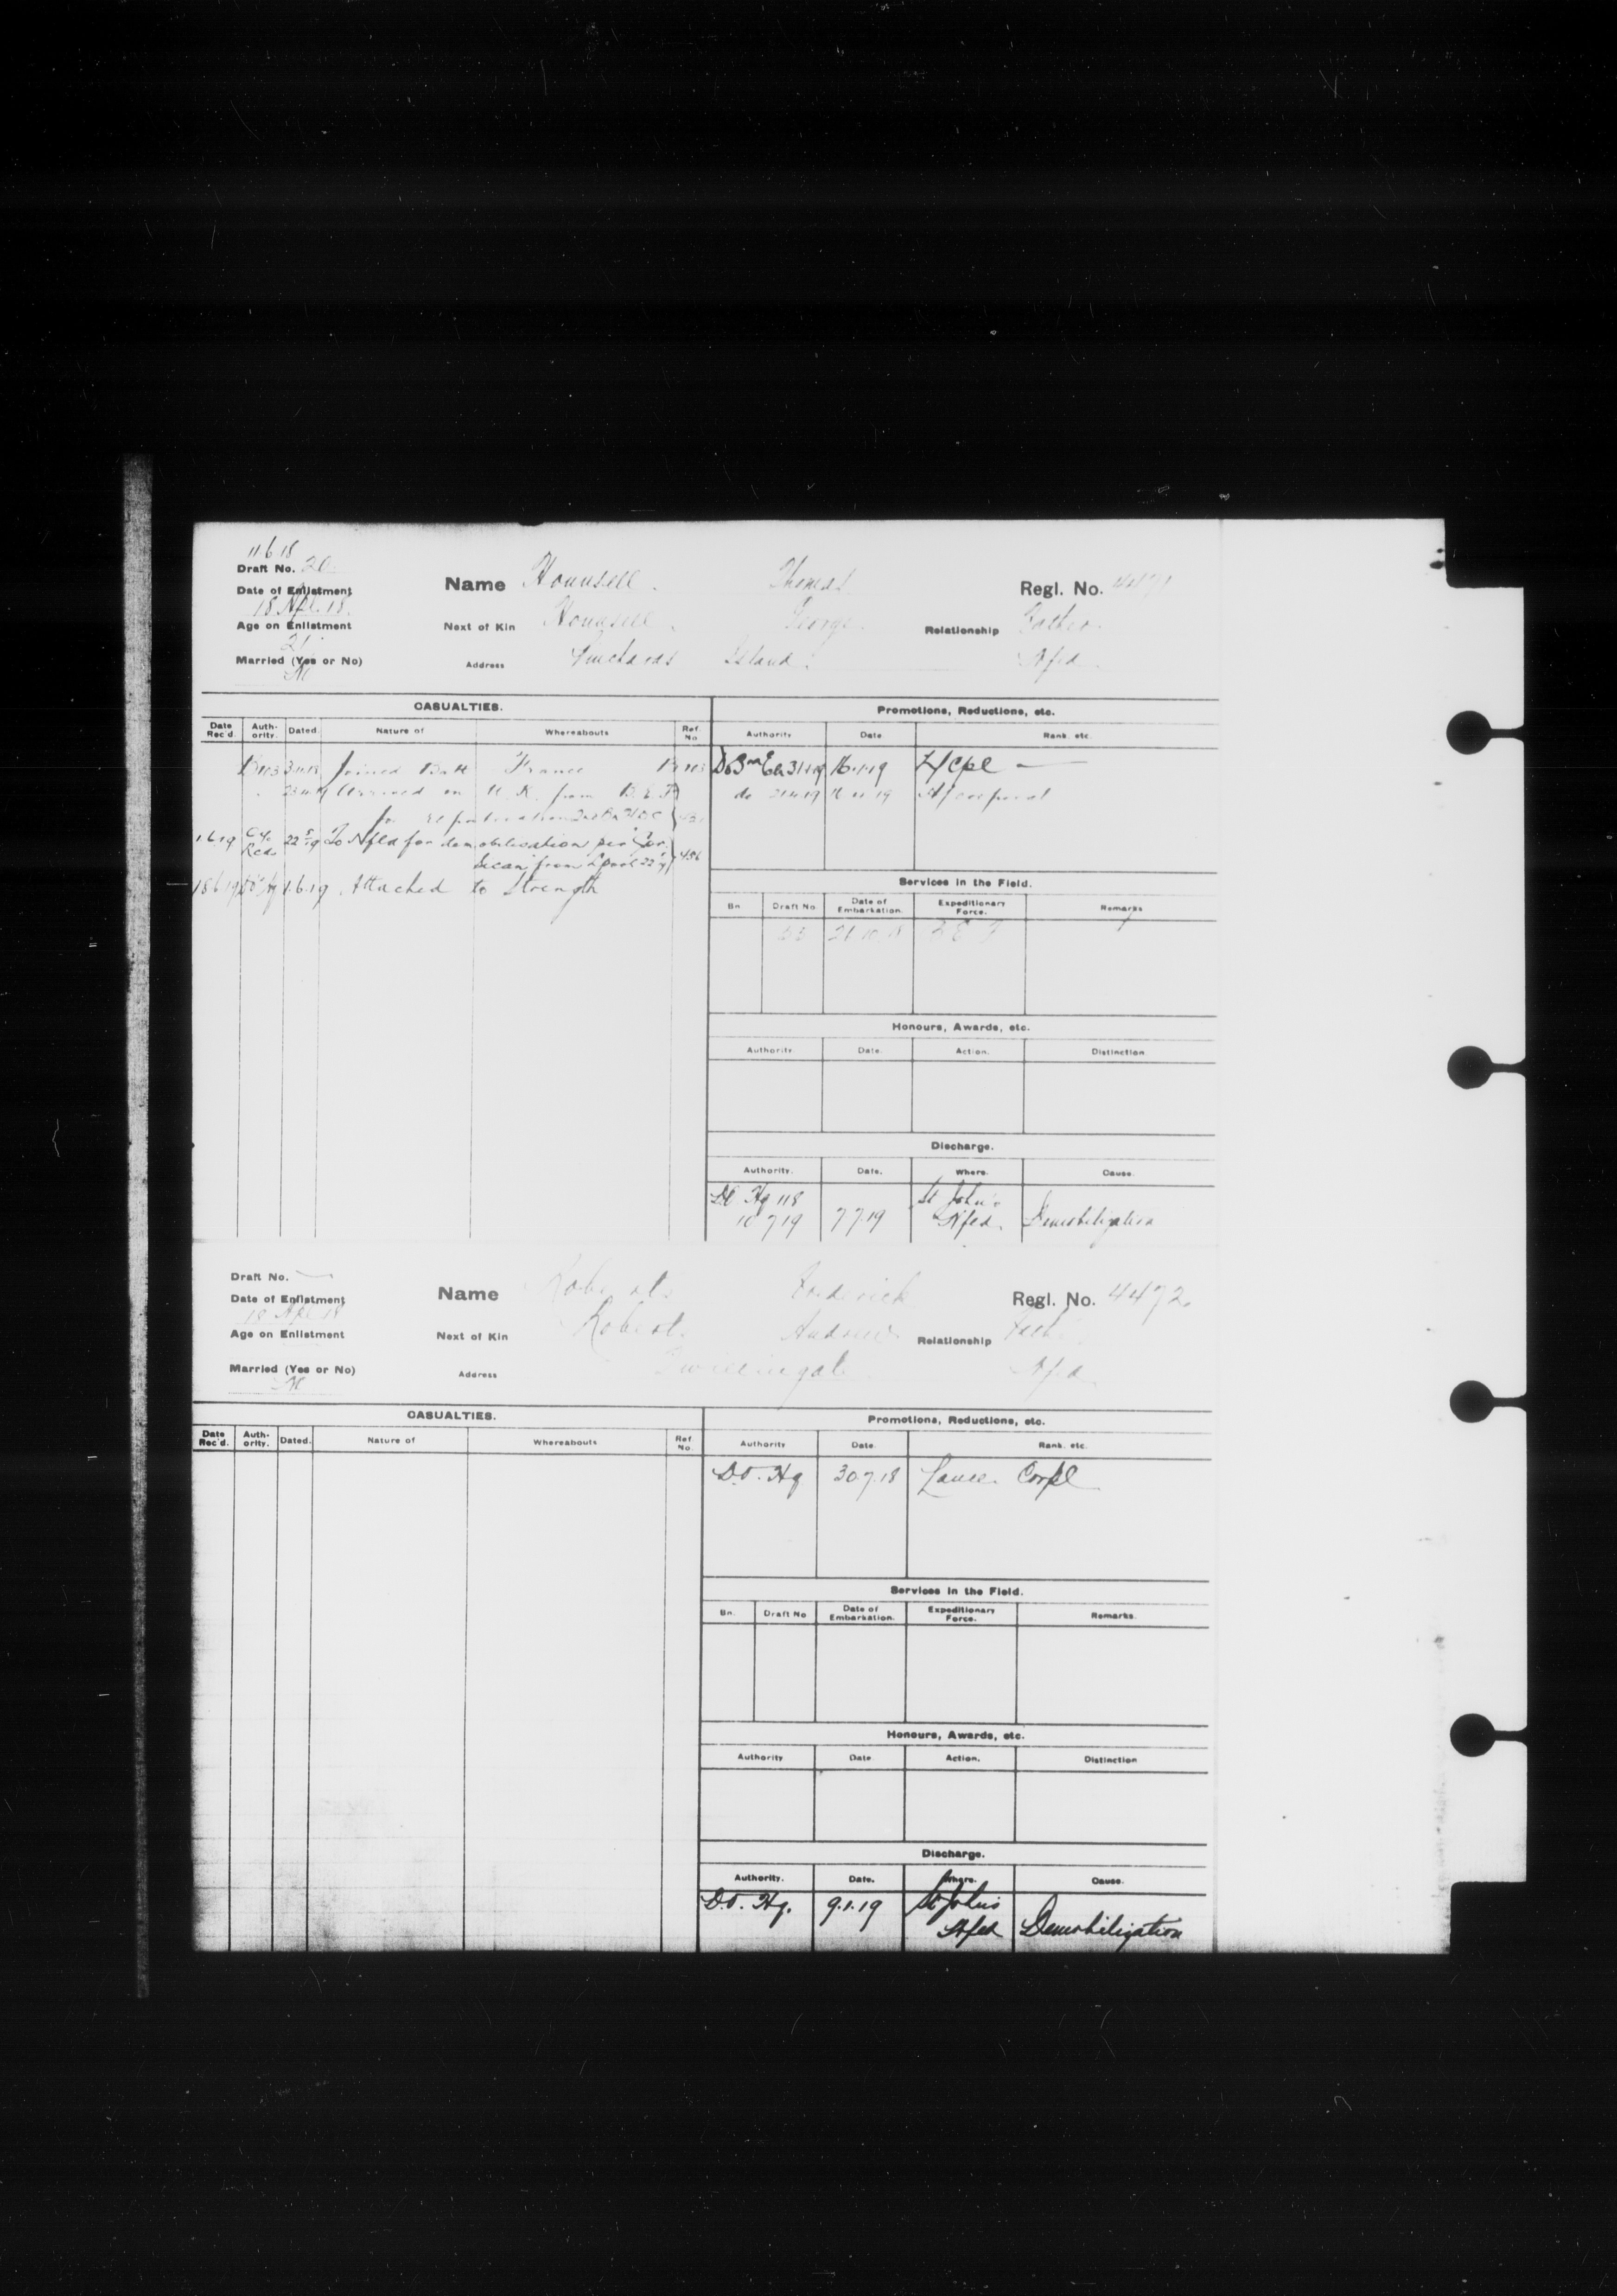 11.6.18
Draft No. 20
Name Hounsell Thomas Regl. No. 4471
Date of Enlistment
18 Apl. 18
Next of Kin Hounsell George Relationship Father
Age on Enlistment
21
Address Island Nfld
Married (Yes or No)
No
CASUALTIES.
Date Rec'd. Auth-ority. Dated. Nature of Whereabouts Ref. No.
Joined Batt France
Arrived in U.K. from B.E.F.
for
1.6.19 22 5 19 To Nfld for demobilisation per
from 22
18.6.19 1.6.19 Attached to Strength
Promotions, Reductions, etc.
Authority Date Rank. etc.
16.1.19 L/Cpl
do A/Corporal
Services in the Field.
Bn. Draft No. Date of Embarkation. Expeditionary Force. Remarks
21 10 18 B E F
Honours, Awards, etc.
Authority. Date. Action. Distinction
Discharge.
Authority. Date. Where. Cause.
Hq 118 St John's
10 7 19 7 7 19 Nfld. Demobilization
Draft No. —
Name Roberts Frederick Regl. No. 4472
Date of Enlistment
18 Apl 18
Next of Kin Roberts Andrew Relationship
Age on Enlistment
Address Twillingate Nfld
Married (Yes or No)
No
CASUALTIES.
Date Rec'd. Auth-ority. Dated. Nature of Whereabouts Ref. No.
Promotions, Reductions, etc.
Authority Date. Rank. etc.
D.O. Hq 30.7.18 Lance Corpl
Services in the Field.
Bn. Draft No Date of Embarkation. Expeditionary Force. Remarks.
Honours, Awards, etc.
Authority Date Action. Distinction
Discharge.
Authority. Date. Where. Cause.
D.O. Hq. 9.1.19 St Johns
Nfld Demobilization